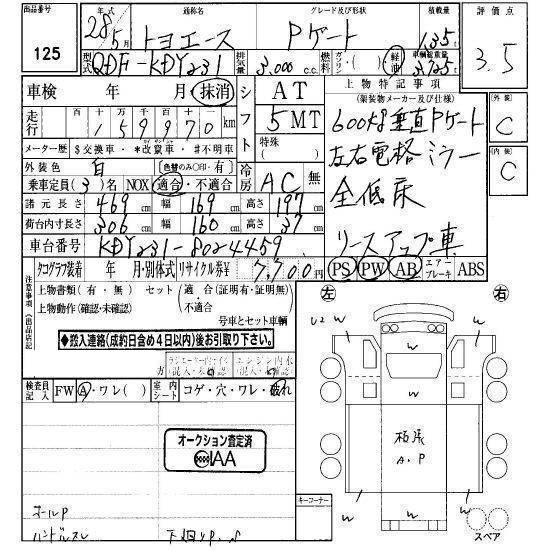 出品番号
125
年式 28年5月
通称名 トヨエース
グレード及び形状 Pゲート
積載量 1.35t
評価点 3.5
型式 QDF-KDY231
排気量 3,000 c.c.
燃料 ガソリン・( )・軽油
車輌総重量 3,725
車検 年 月 抹消
シフト AT
5 MT
特殊( )
走行 十万千百十
159970 km
メーター歴 $交換車・*改竄車・#不明車
外装色 白 [色替のみ○印・有]
冷房 AC 無
乗車定員(3)名 NOX 適合・不適合
諸元長さ 469 cm 幅 169 cm 高さ 197 cm
荷台内寸長さ 306 cm 幅 160 cm 高さ 37 cm
車台番号 KDY231-8024459
上物特記事項
(架装物メーカー及び仕様)
600kg垂直Pゲート
左右電格ミラー
全低床
リースアップ車
PS PW AB エアーブレーキ ABS
外装 C
内装 C
タコグラフ装着 年 月・別体式 リサイクル券¥ 7,700円
注意事項(出品店記
上物書類(有・無) セット(適合(証明有・証明無)
上物動作(確認・未確認) ・不適合
号車とセット車輌
◆搬入連絡(成約日含め4日以内)後お引取り下さい。
検査員記入 FW A・ワレ( ) 室内シート コゲ・穴・ワレ・破れ
オークション査定済
IAA
コールP
ハンドルスレ
キーコーナー
左
右
U2
W
W
W
W
W
W
W
W
A.P
スペア